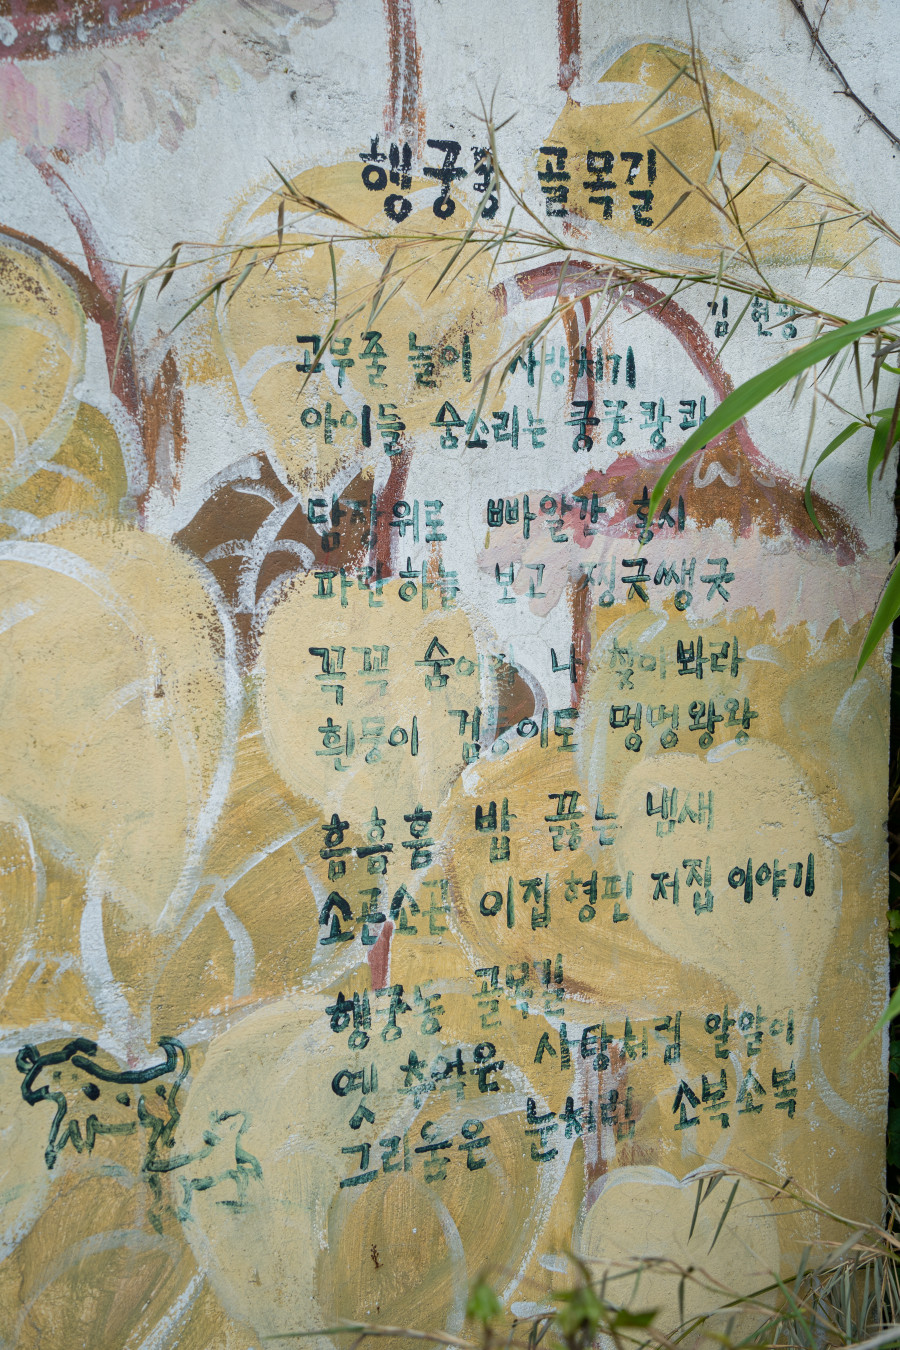 행궁동 골목길
김현광
고무줄 놀이 사방치기
아이들 숨소리는 콩콩 쾅쾅
담장위로 빠알간 홍시
파란하늘 보고 찡긋쌩긋
꼭꼭 숨어라 나 찾아봐라
흰둥이 검둥이도 멍멍왕왕
흠흠흠 밥 끓는 냄새
소곤소곤 이집형편 저집이야기
행궁동 골목길
옛 추억은 사탕처럼 알알이
그리움은 눈처럼 소복소복